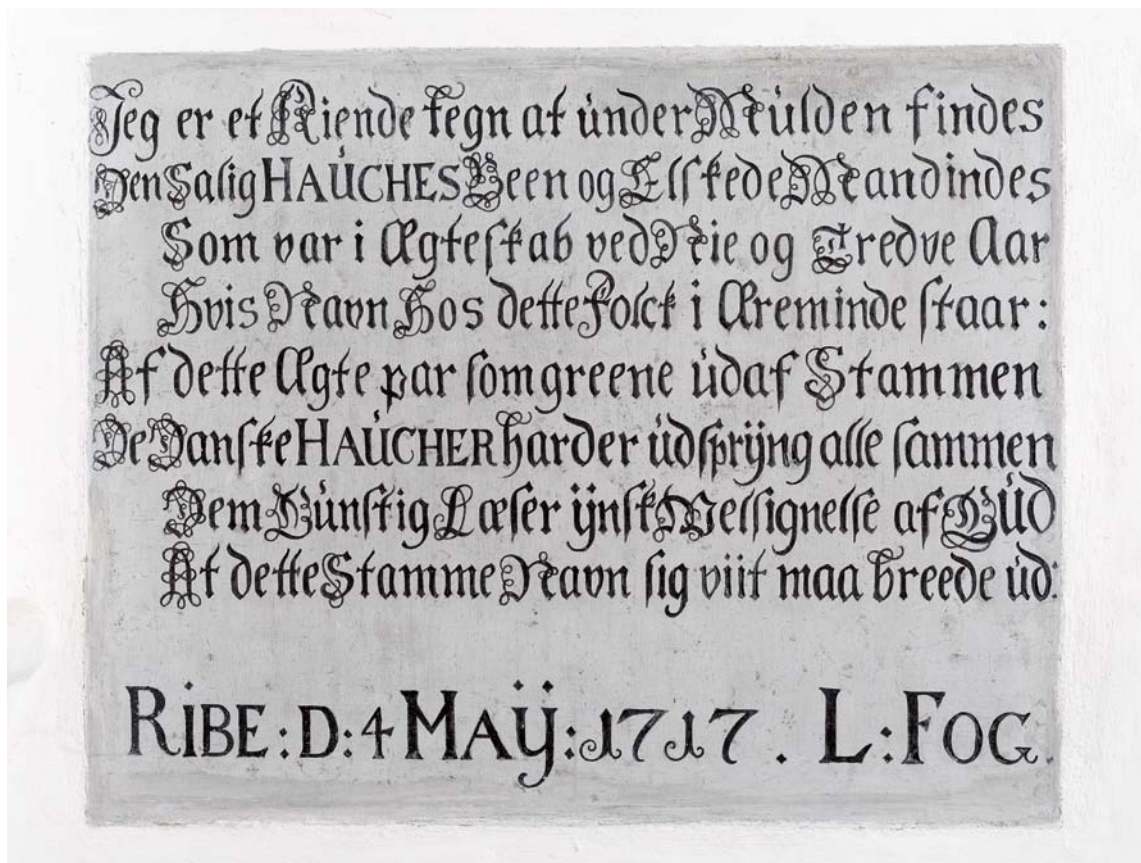 Jeg er et Kiende tegn at ùnder Mùlden findes
Den Salig HAÙCHES Been og Elſkede Mandindes
Som var i Ægteſkab ved Nie og Tredve Aar
Hvis Navn Hos dette Folck i Æreminde ſtaar:
Af dette Ægte par ſom greene ùdaf Stammen
De Danſke HAÙCHER har der ùdſprÿng alle ſammen
Dem Gùnſtig Læſer ÿnſk Velſignelſe af GÙD
At dette Stamme Navn ſig viit maa breede ùd:
RIBE: D: 4 MAŸ: 1717. L: FOG.